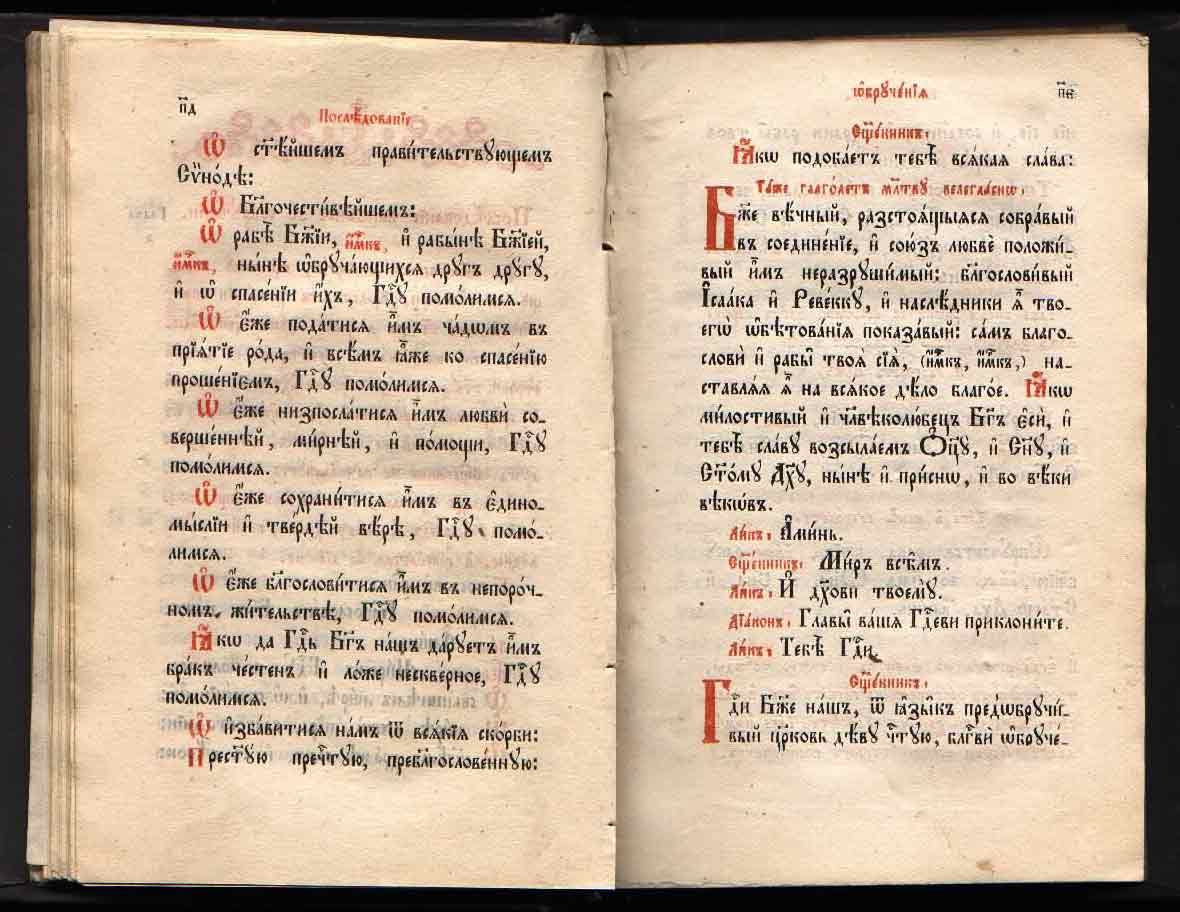 п҃д
Послѣ́дованїе
Ѡ҆ ст҃ѣ́йшемъ прави́тельствующемъ
Сѷно́дѣ:
Ѡ҆ Бл҃гочести́вѣйшемъ:
Ѡ҆ рабѣ̀ Бж҃їи, и҆́м҃къ, и҆ рабы́нѣ Бж҃їей,
и҆́м҃къ, ны́нѣ ѡ҆бруча́ющихся дру́гъ дру́гу,
и҆ ѡ҆ спасе́нїи и҆́хъ, Гдⷭ҇у помо́лимся.
Ѡ҆ є҆́же пода́тися и҆̀мъ ча́дѡмъ въ
прїѧ́тїе ро́да, и҆ всѣ̑мъ ꙗ҆̀же ко спасе́нїю
проше́нїємъ, Гдⷭ҇у помо́лимся.
Ѡ҆ є҆́же низпосла́тися и҆̀мъ любвѝ со-
верше́ннѣй, ми́рнѣй, и҆ по́мощи, Гдⷭ҇у
помо́лимся.
Ѡ҆ є҆́же сохрани́тися и҆̀мъ въ є҆дино-
мы́слїи и҆ тве́рдѣй вѣ́рѣ, Гдⷭ҇у помо́-
лимся.
Ѡ҆ є҆́же бл҃гослови́тися и҆̀мъ въ непоро́ч-
номъ жи́тельствѣ, Гдⷭ҇у помо́лимся.
Ꙗ҆́кѡ да Гдⷭ҇ь Бг҃ъ на́шъ да́руетъ и҆̀мъ
бра́къ че́стенъ и҆ ло́же нескве́рное, Гдⷭ҇у
помо́лимся.
Ѡ҆ и҆зба́витися на́мъ ѿ всѧ́кїѧ ско́рби:
Прест҃у́ю пречⷭ҇тую, пребл҃гослове́нную:
ѡ҆бруче́нїѧ
п҃є
Сщ҃е́нникъ:
Ꙗ҆́кѡ подоба́етъ тебѣ̀ всѧ́кая сла́ва:
Та́же глаго́летъ мл҃тву велегла́снѡ,
Бж҃е вѣ́чный, разстоѧ́щыѧсѧ собра́вый
въ соедине́нїе, и҆ сою́зъ любвѐ положи́-
вый и҆̀мъ неразруши́мый: бл҃гослови́вый
І҆саа́ка и҆ Реве́кку, и҆ наслѣ́дники ѧ҆̀ тво-
егѡ̀ ѡ҆бѣтова́нїѧ показа́вый: са́мъ благо-
словѝ и҆ рабы̑ твоѧ̀ сїѧ̀, (и҆́м҃къ, и҆́м҃къ,) на-
ставлѧ́ѧ ѧ҆̀ на всѧ́кое дѣ́ло благо́е. Ꙗ҆́кѡ
ми́лостивый и҆ чл҃вѣколю́бецъ Бг҃ъ є҆сѝ, и҆
тебѣ̀ сла́ву возсыла́емъ Ѻ҆ц҃у, и҆ Сн҃у, и҆
Ст҃о́му Дх҃у, ны́нѣ и҆ при́снѡ, и҆ во вѣ́ки
вѣкѡ́въ.
Ли́къ: А҆ми́нь.
Сщ҃е́нникъ: Ми́ръ всѣ̑мъ.
Ли́къ: И҆ дх҃ови твоему̀.
Дїа́конъ: Главы̑ ва́шѧ Гдⷭ҇еви приклони́те.
Ли́къ: Тебѣ̀ Гдⷭ҇и.
Сщ҃е́нникъ:
Гдⷭ҇и Бж҃е на́шъ, ѿ ꙗ҆зы̑къ предѡбручи́-
вый цр҃ковь дѣ́ву чⷭ҇тую, блг҃вѝ ѡ҆бруче́-